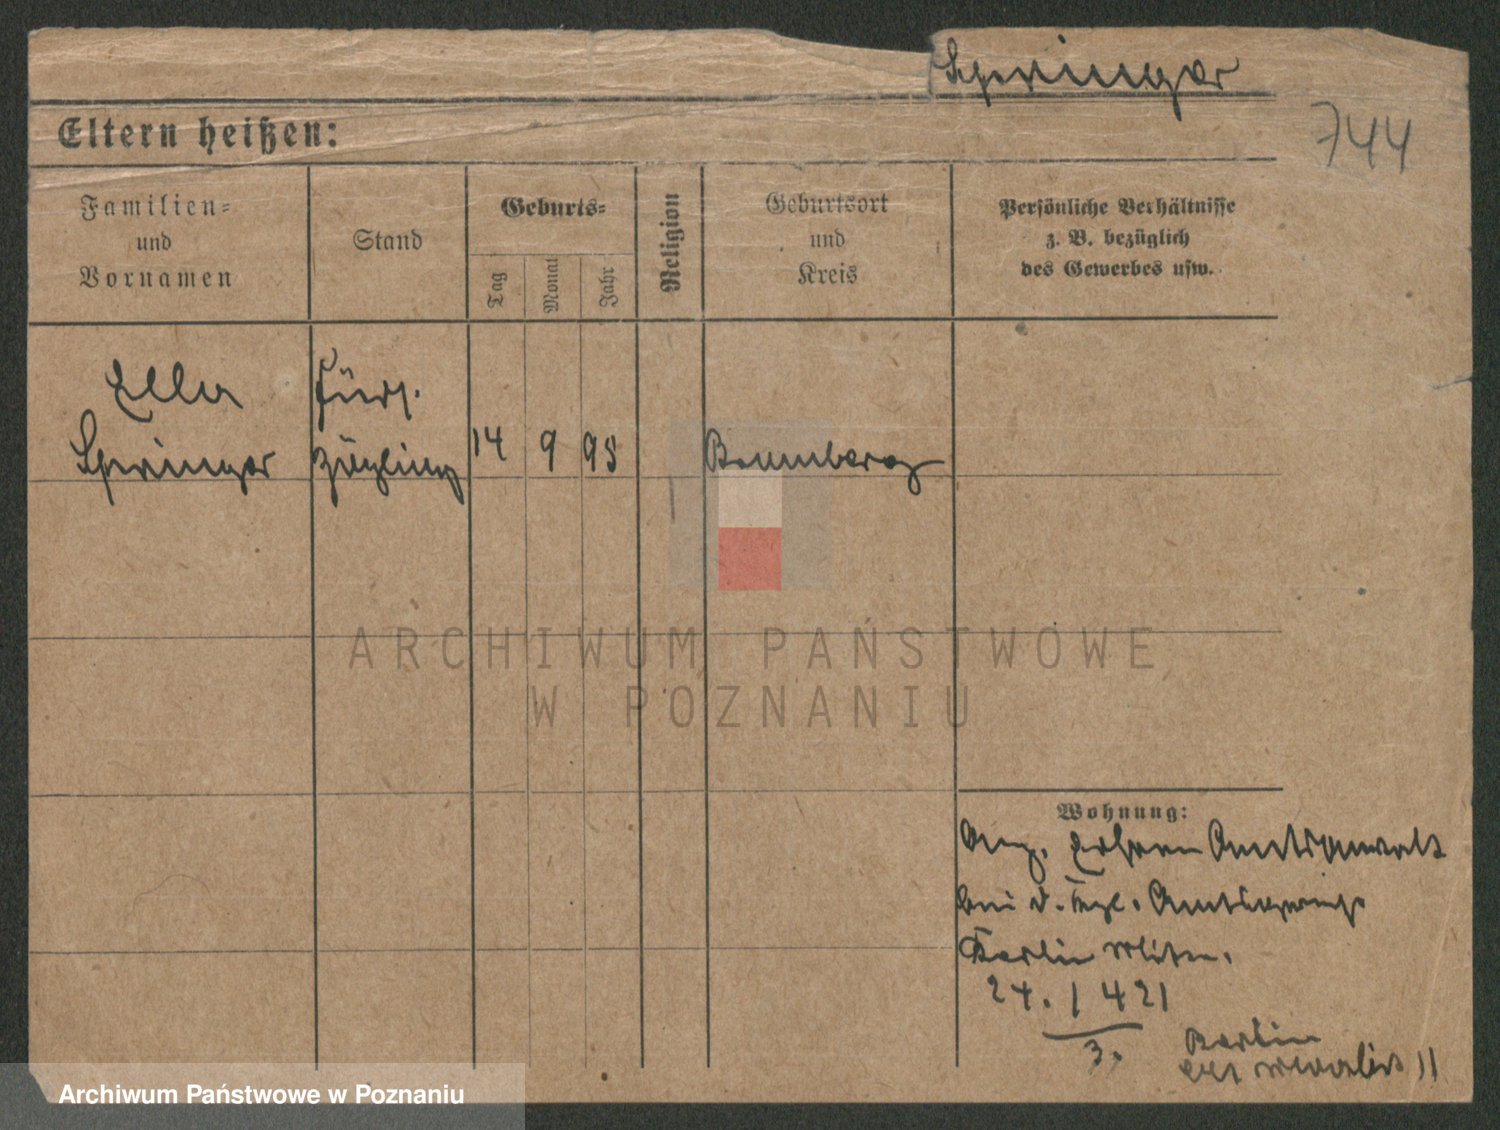 Springer
744
Eltern heißen:
Familien=
und
Vornamen
Stand
Geburts=
Tag
Monat
Jahr
Religion
Geburtsort
und
Kreis
Persönliche Verhältnisse
z. B. bezüglich
des Gewerbes usw.
Ella Fürs.
Springer Zögling 14 9 95 Bromberg
ARCHIWUM PAŃSTWOWE
W POZNANIU
Wohnung:
Amtsanwalt
bei d. Kgl. Amtsgericht
Berlin Mitte.
24. 1 421
3.
Berlin
11
Archiwum Państwowe w Poznaniu